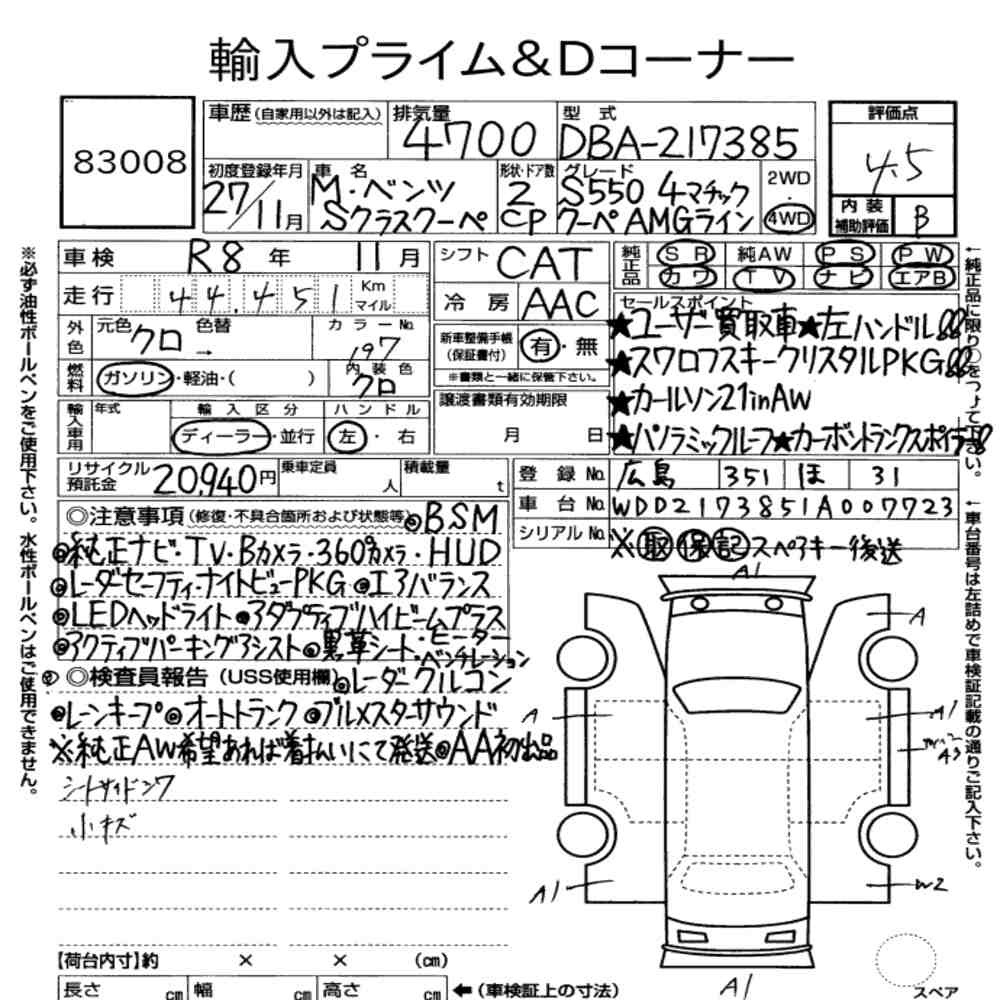 輸入プライム&Dコーナー
83008
車歴(自家用以外は記入)
排気量 4700
型式 DBA-217385
評価点 4.5
初度登録年月 27/11月
車名 M・ベンツ Sクラスクーペ
形状・ドア数 2 CP
グレード S550 4マチック クーペ AMGライン
2WD
4WD
内装補助評価 B
車検 R8年 11月
シフト CAT
純正品 SR 純AW PS PW
カワ TV ナビ エアB
走行 44,451 Km マイル
冷房 AAC
セールスポイント
★ユーザー買取車★左ハンドル!!
★スワロフスキークリスタルPKG!!
★カールソン21inAW
★パノラミックルーフ★カーボントランクスポイラー!!
外色 元色 クロ → 色替
カラーNo. 197
新車整備手帳(保証書付) 有・無
※書類と一緒に保管下さい。
燃料 ガソリン・軽油・( )
内装色 クロ
輸入車用 年式
輸入区分 ディーラー・並行
ハンドル 左・右
譲渡書類有効期限
月 日
リサイクル預託金 20,940円
乗車定員 人
積載量 t
登録No. 広島 351 ほ 31
車台No. WDD2173851A007723
シリアルNo. ※取保記スペアキー後送
◎注意事項(修復・不具合箇所および状態等)◎BSM
◎純正ナビ・TV・Bカメラ・360°カメラ・HUD
◎レーダーセーフティ・ナイトビューPKG ◎エアバランス
◎LEDヘッドライト◎アダプティブハイビームプラス
◎アクティブパーキングアシスト◎黒革シート・ヒーター・ベンチレーション
◎検査員報告(USS使用欄)◎レーダークルコン
◎レーンキープ◎オートトランク◎ブルメスターサウンド
※純正AW希望あれば着払いにて発送◎AA初出品
小キズ
A1
A
A
A1
A3
A1
W2
A1
【荷台内寸】約 × × (cm)
長さ cm 幅 cm 高さ cm ←(車検証上の寸法)
スペア
※必ず油性ボールペンをご使用下さい。水性ボールペンはご使用できません。
←純正品に限り○をつけて下さい。
←車台番号は左詰めで車検証記載の通りご記入下さい。